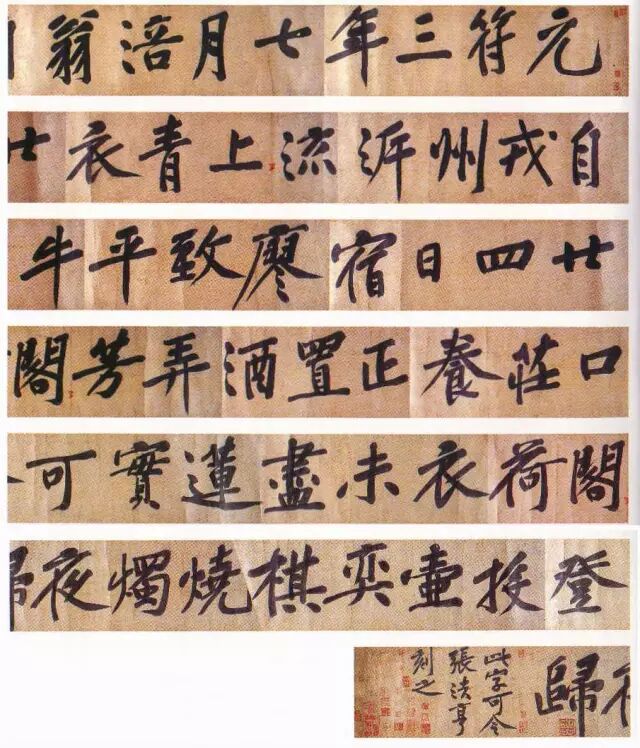 元符三年七月涪翁
自戎州泝流上青衣
廿四日宿廖致平牛
口莊養正置酒弄芳閣
閣荷衣未盡蓮實可
登投壺弈棋燒燭夜
歸
此字可令
張法亨
刻之